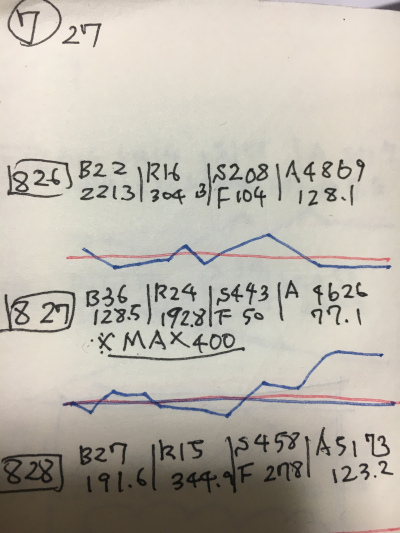 7 27
826 B22 | R16 | S208 | A4869
2213 | 304.3 | F104 | 128.1
827 B36 | R24 | S443 | A 4626
128.5 | 192.8 | F 50 | 77.1
※ MAX 400
828 B27 | R15 | S458 | A5173
191.6 | 344.9 | F 278 | 123.2